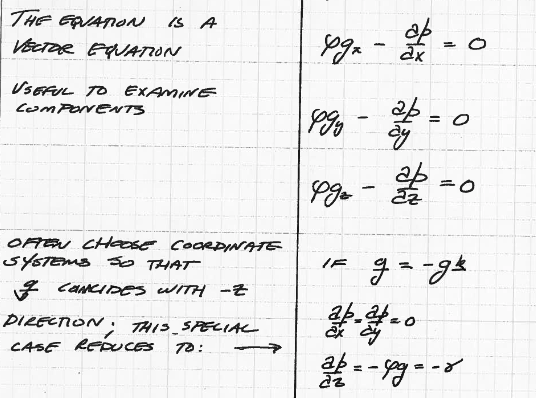 THE EQUATION IS A
VECTOR EQUATION
USEFUL TO EXAMINE
COMPONENTS
OFTEN CHOOSE COORDINATE
SYSTEMS SO THAT
g COINCIDES WITH -Z
DIRECTION; THIS SPECIAL
CASE REDUCES TO: →
ρg_x - ∂p/∂x = 0
ρg_y - ∂p/∂y = 0
ρg_z - ∂p/∂z = 0
IF g = -gk
∂p/∂x = ∂p/∂y = 0
∂p/∂z = -ρg = -γ